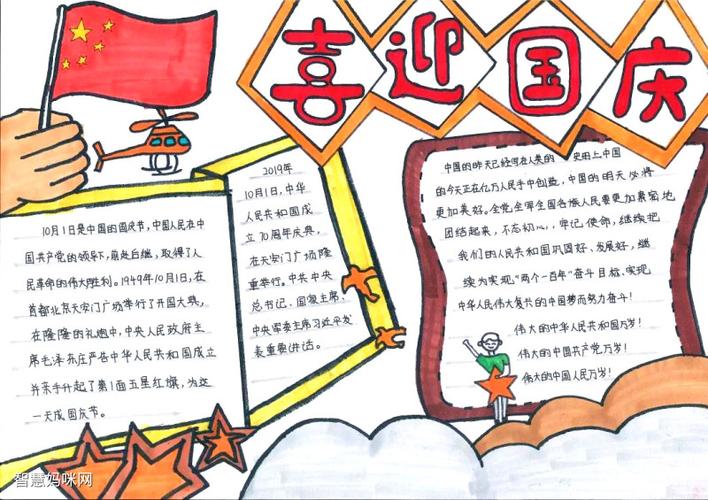 喜迎国庆
10月1日是中国的国庆节,中国人民在中
国共产党的领导下,前赴后继,取得了人
民革命的伟大胜利。1949年10月1日,在
首都北京天安门广场举行了开国大典,
在隆隆的礼炮中,中央人民政府主
席毛泽东庄严告中华人民共和国成立
并亲手升起了第1面五星红旗,为这
一天成国庆节。
2019年
10月1日,中华
人民共和国成
立70周年庆典,
在天安门广场隆
重举行。中共中央
总书记、国家主席、
中央军委主席习近平发
表重要讲话。
中国的昨天已经写在人类的 史册上中国
的今天正在亿万人民手中创造,中国的明天必将
更加美好。全党全军全国各族人民要更加紧密地
团结起来,不忘初心,牢记使命,继续把
我们的人民共和国巩固好、发展好,继
续为实现“两个一百年”奋斗目标、实现
中华人民伟大复兴的中国梦而努力奋斗!
伟大的中华人民共和国万岁!
伟大的中国共产党万岁!
伟大的中国人民万岁!
智慧妈咪网